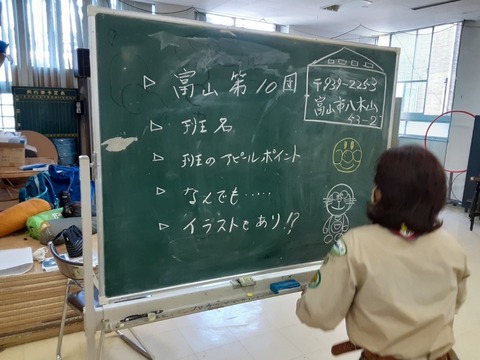 ▷ 富山第10団
▷ 班名
▷ 班のアピールポイント
▷ なんでも……
▷ イラストもあり!?
〒939-2253
富山市八木山
43-2